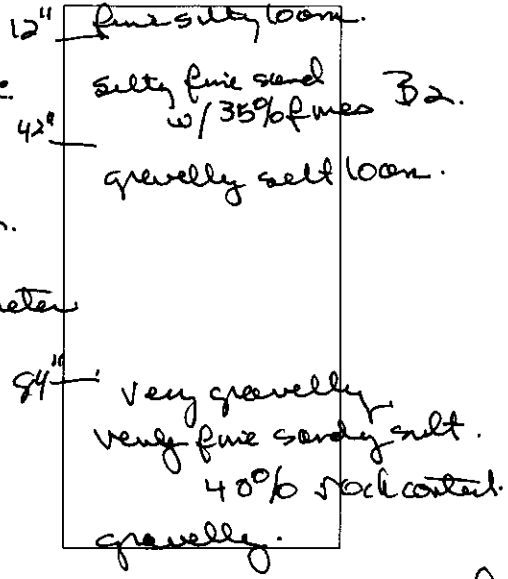 fine silty loam.
12"
silty fine sand
w/ 35% fines B2.
42"
gravelly silt loam.
84"
very gravelly
very fine sandy silt.
40% rock content.
gravelly.